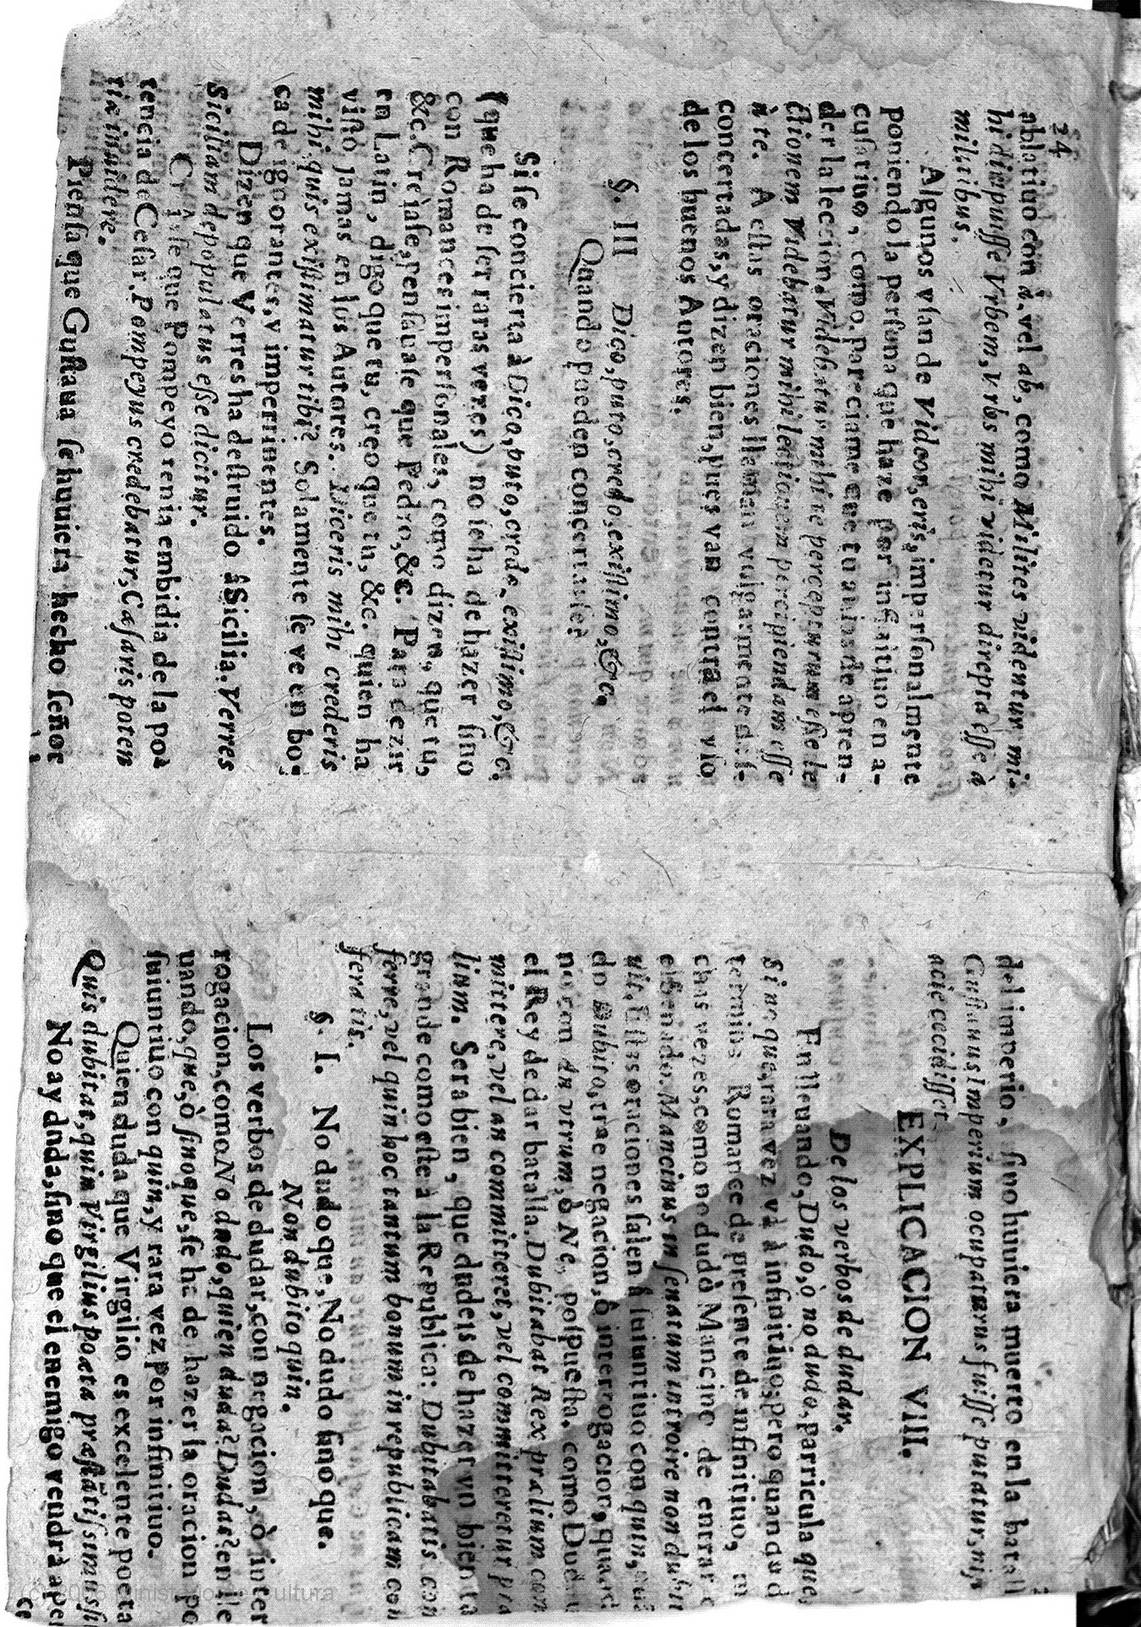 24
ablatiuo con à, vel ab, como Milites videntur mi-
hi diripuisse Vrbem, vrbs mihi videtur direpta esse à
militibus.
Algunos vsan de Videor, eris, impersonalmente
poniendo la persona que haze por infinitiuo en a-
cusatiuo, como, pareciame que tu auias de apren-
der la leccion, Videbatur mihi te percepturum esse le-
ctionem Videbatur mihi lectionem percipiendam esse
à te. A estas oraciones llaman vulgarmente des-
concertadas, y dizen bien, pues van contra el vso
de los buenos Autores.
§. III Dico, puto, credo, existimo, &c.
Quando pueden concertarse?
Si se concierta à Dico, puto, credo, existimo, &c.
(que ha de ser raras vezes) no se ha de hazer sino
con Romances impersonales, como dizen, que tu,
&c. Creiase, pensauase que Pedro, &c. Para dezir
en Latin, digo que tu, creo que tu, &c. quien ha
visto jamas en los Autores. Diceris mihi crederis
mihi quis existimatur tibi? Solamente se ve en bo-
ca de ignorantes, y impertinentes.
Dizen que Verres ha destruido à Sicilia. Verres
Siciliam depopulatus esse dicitur.
que Pompeyo tenia embidia de la po
tencia de Cesar. Pompeyus credebatur, Cæsaris poten
tiæ inuidere.
Piensa que Gustaua se huuiera hecho señor
del imperio, sino huuiera muerto en la batall
Gustauus Imperium occupaturus fuisse putatur, nis
acie cecidisset.
EXPLICACION VIII.
De los verbos de dudar.
En lleuando, Dudo, ò no dudo, particula que,
Sino que, rara vez và à infinitiuo; pero quando
termina Romance de presente de infinitiuo, m
chas vezes, como no dudò Mancino de entrar e
el Senado. Mancinus in senatum introire non dubit
uit. Estas oraciones salen à suiuntiuo con quin,
do Dubito, trae negacion, ò interrogacion, quand
no con An vtrum, ò Ne, pospuesta. como Dud
el Rey de dar batalla. Dubitabat Rex prælium com
mittere, vel an committeret, vel committeretur præ
lium. Sera bien, que dudeis de hazer vn bien ta
grande como este à la Republica: Dubitabatis con
ferre, vel quin hoc tantum bonum in republicam con
feratis.
§ I. No dudo que, No dudo sino que.
Non dubito quin.
Los verbos de dudar, con negacion, ò inter
rogacion, como No dudo, quien duda? Dudas? en lle
uando, que, ò sino que, se ha de hazer la oracion po
suiuntiuo con quin, y rara vez por infinitiuo.
Quien duda que Virgilio es excelente poeta
Quis dubitat, quin Virgilius poata præstãtissimus si
No ay duda, sino que el enemigo vendrà ape
ce